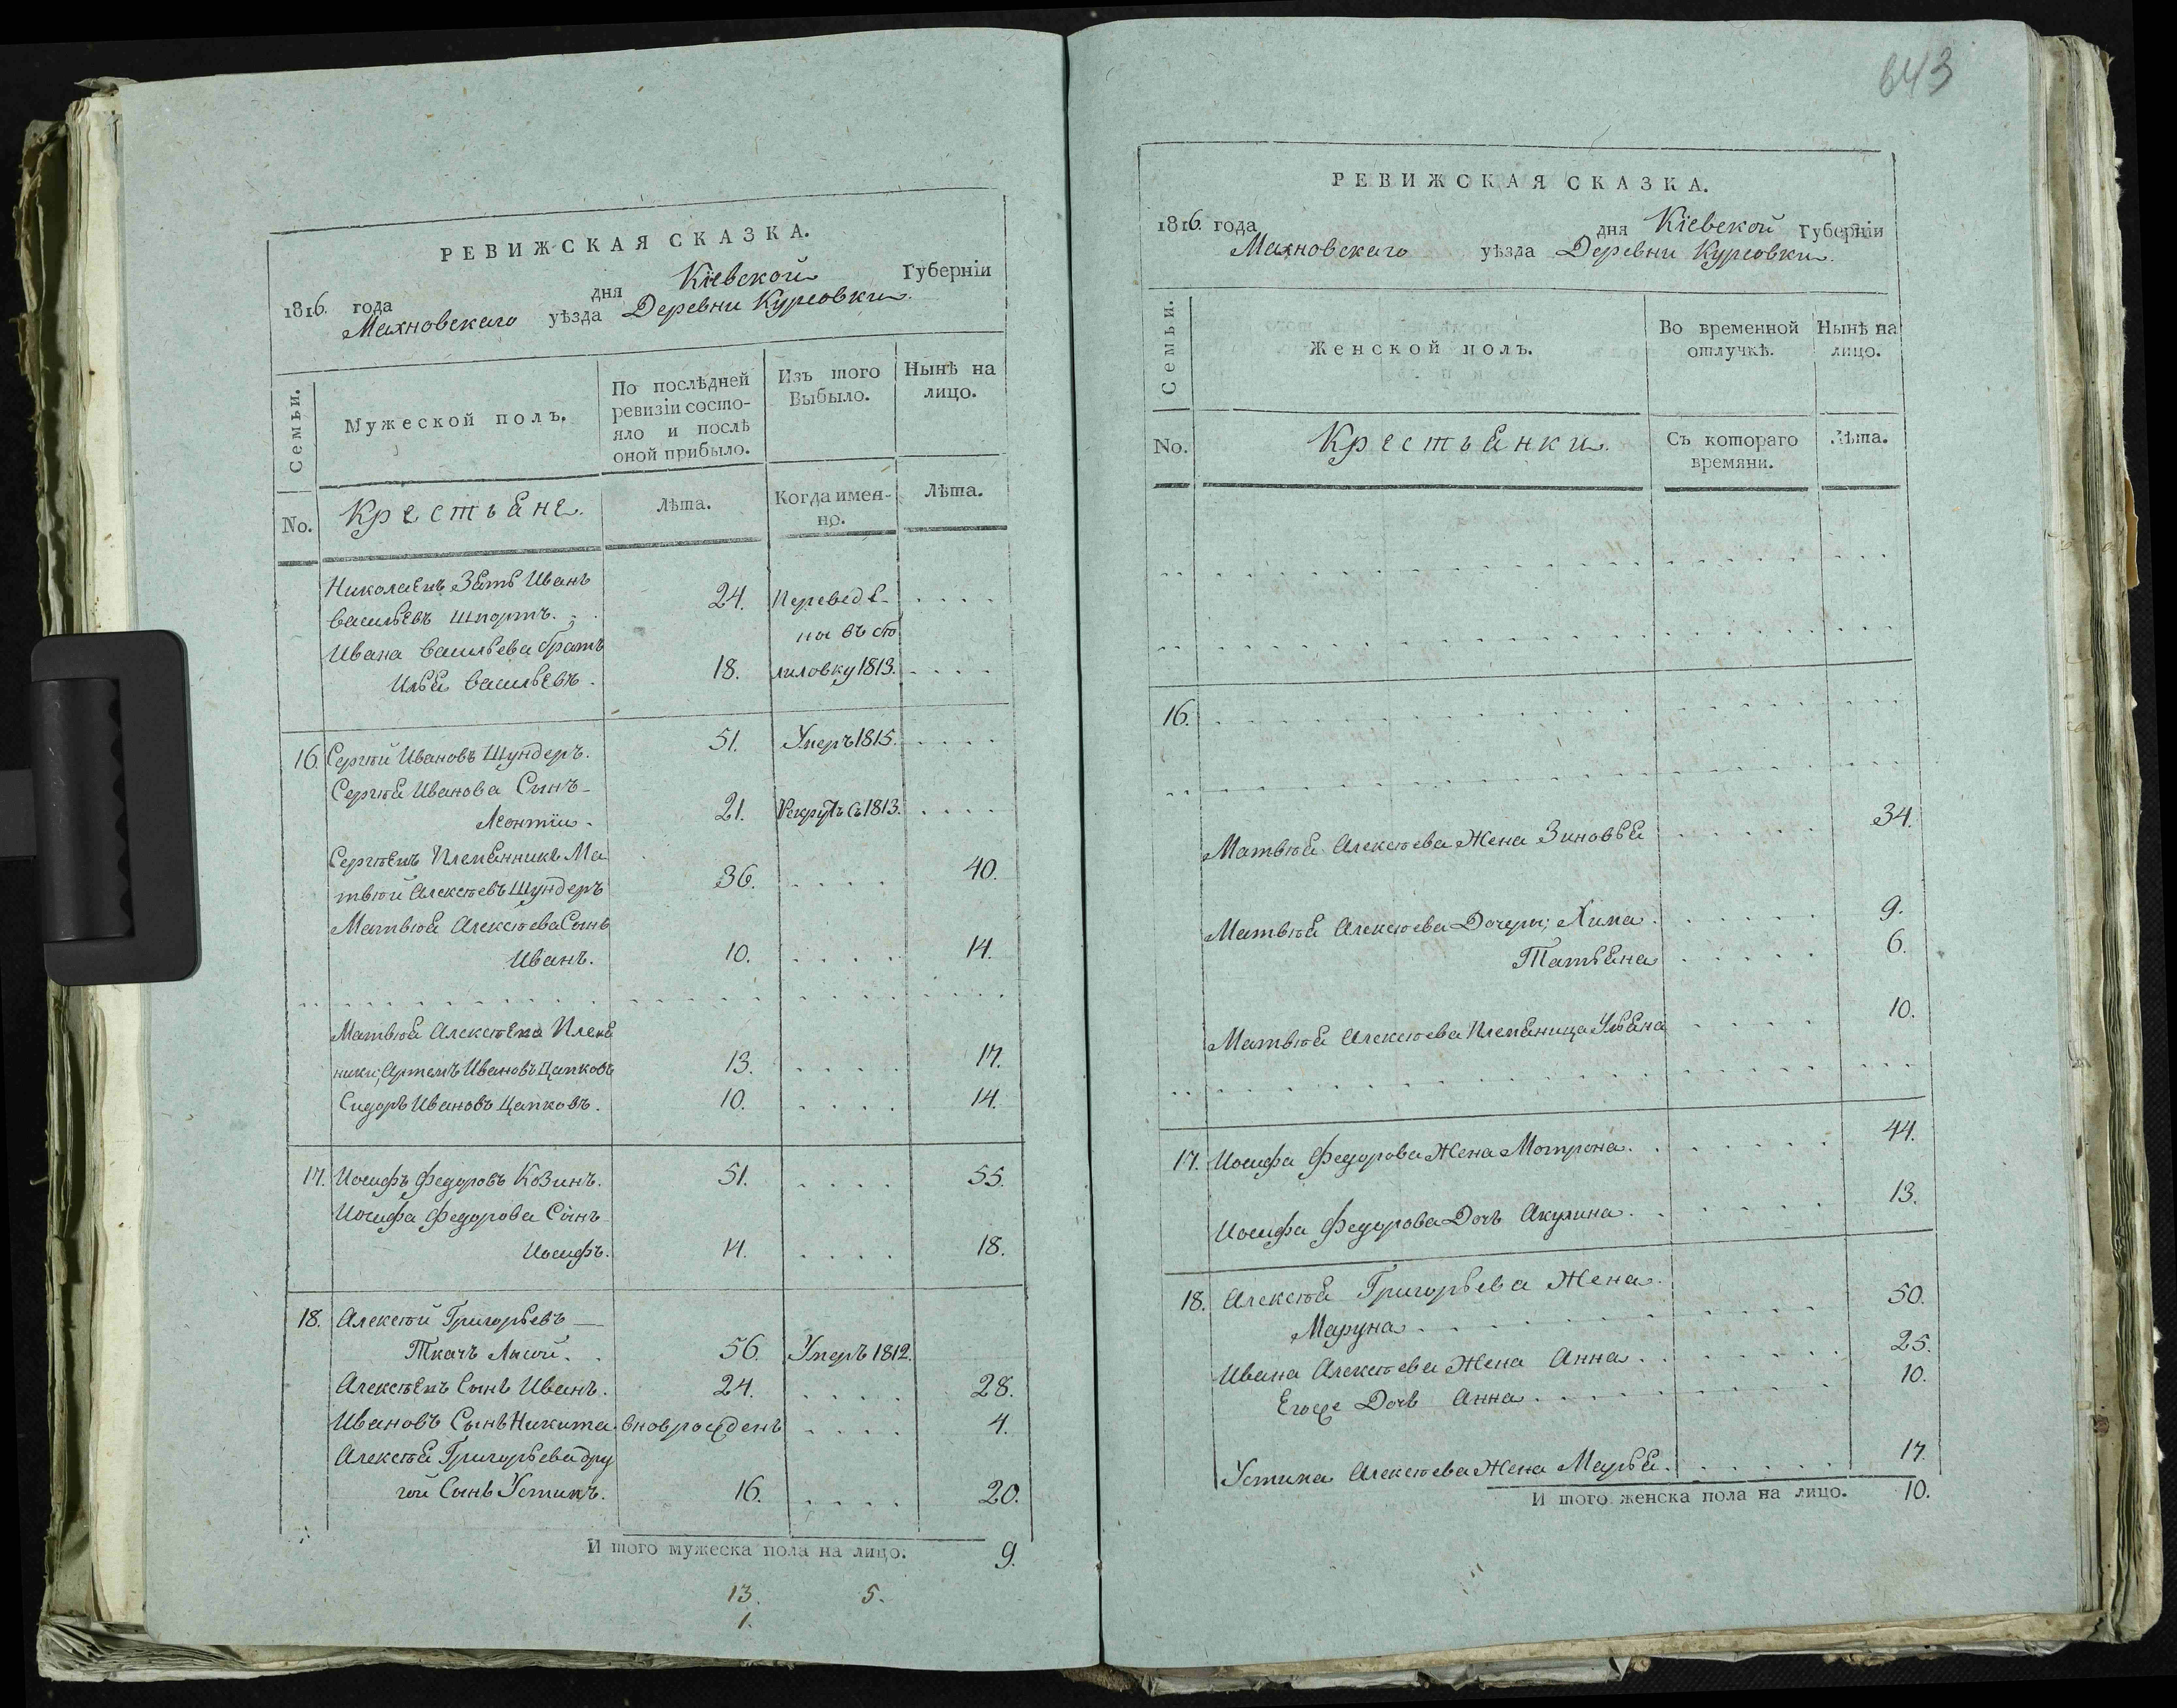 РЕВИЖСКАЯ СКАЗКА.
1816. года дня Кіевской Губерніи
Махновскаго уѣзда Деревни Курсовки.
Семьи.
Мужеской полъ.
По послѣдней
ревизіи состо-
яло и послѣ
оной прибыло.
Изъ того
Выбыло.
Нынѣ на
лицо.
No.
Крестьяне.
Лѣта.
Когда имен-
но.
Лѣта.
Николаевъ Зять Иванъ
Васильевъ Шпортъ. 24. Переведе-
Ивана Васильева братъ ны въ сто
Илья Васильевъ. 18. лиловку 1813.
16. Сергѣй Ивановъ Шундеръ. 51. Умеръ 1815.
Сергѣя Иванова Сынъ
Леонтіи. 21. Рекрутъ съ 1813.
Сергѣевъ Племянникъ Ма
твѣй Алексѣевъ Шундеръ 36. 40.
Матвѣя Алексѣева Сынъ
Иванъ. 10. 14.
Матвѣя Алексѣева Племя
ники; Артемъ Ивановъ Цапковъ 13. 17.
Сидоръ Ивановъ Цапковъ. 10. 14.
17. Иосифъ Федоровъ Козинъ. 51. 55.
Иосифа Федорова Сынъ
Иосифъ. 14. 18.
18. Алексѣй Григорьевъ
Ткачъ Лысой. 56. Умеръ 1812.
Алексѣевъ Сынъ Иванъ. 24. 28.
Ивановъ Сынъ Никита. вноврожденъ 4.
Алексѣя Григорьева дру
гой Сынъ Устимъ. 16. 20.
И того мужеска пола на лицо. 9.
13. 5.
1.
643
РЕВИЖСКАЯ СКАЗКА.
1816. года дня Кіевской Губерніи
Махновскаго уѣзда Деревни Курсовки.
Семьи.
Женской полъ.
Во временной
отлучкѣ.
Нынѣ на
лицо.
No.
Крестьянки.
Съ котораго
времяни.
Лѣта.
16.
Матвѣя Алексѣева Жена Зиновья 34.
Матвѣя Алексѣева Дочери; Хима. 9.
Татьяна 6.
Матвѣя Алексѣева Племяница Ульяна 10.
17. Иосифа Федорова Жена Мотрона. 44.
Иосифа Федорова Дочь Акулина. 13.
18. Алексѣя Григорьева Жена
Маруна. 50.
Ивана Алексѣева Жена Анна. 25.
Егоже Дочь Анна. 10.
Устима Алексѣева Жена Марья. 17.
И того женска пола на лицо. 10.